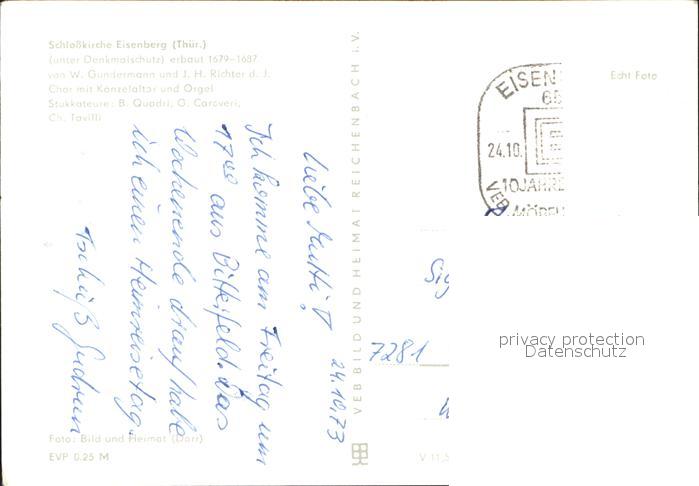 Schloßkirche Eisenberg (Thür.)
(unter Denkmalschutz) erbaut 1679-1687
von W. Gundermann und J. H. Richter d. J.
Chor mit Kanzelaltar und Orgel
Stukkateure: B. Quadri, G. Caroveri,
Ch. Tavilli
24.10.73
Liebe Mutti!
Ich komme am Freitag um
17⁰⁰ aus Bitterfeld. Das
Wochenende drauf habe
ich einen Heimreisetag.
Tschüß Gudrun
Foto: Bild und Heimat (Darr)
EVP 0.25 M
VEB BILD UND HEIMAT REICHENBACH I. V.
V 11,5
Echt Foto
EISEN
65
24.10.
10 JAHRE
VEB
MÖBEL
Sig
7281
privacy protection
Datenschutz